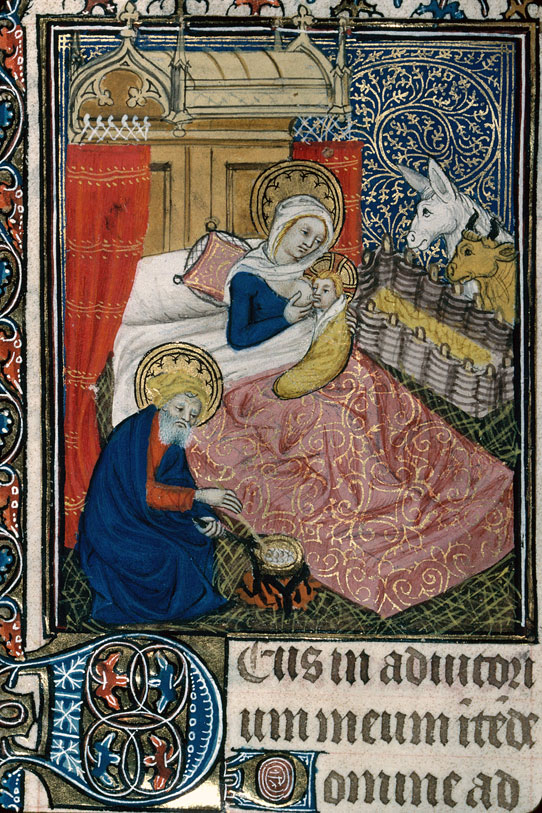 DEus in adiutori
um meum ītēde
Domine ad